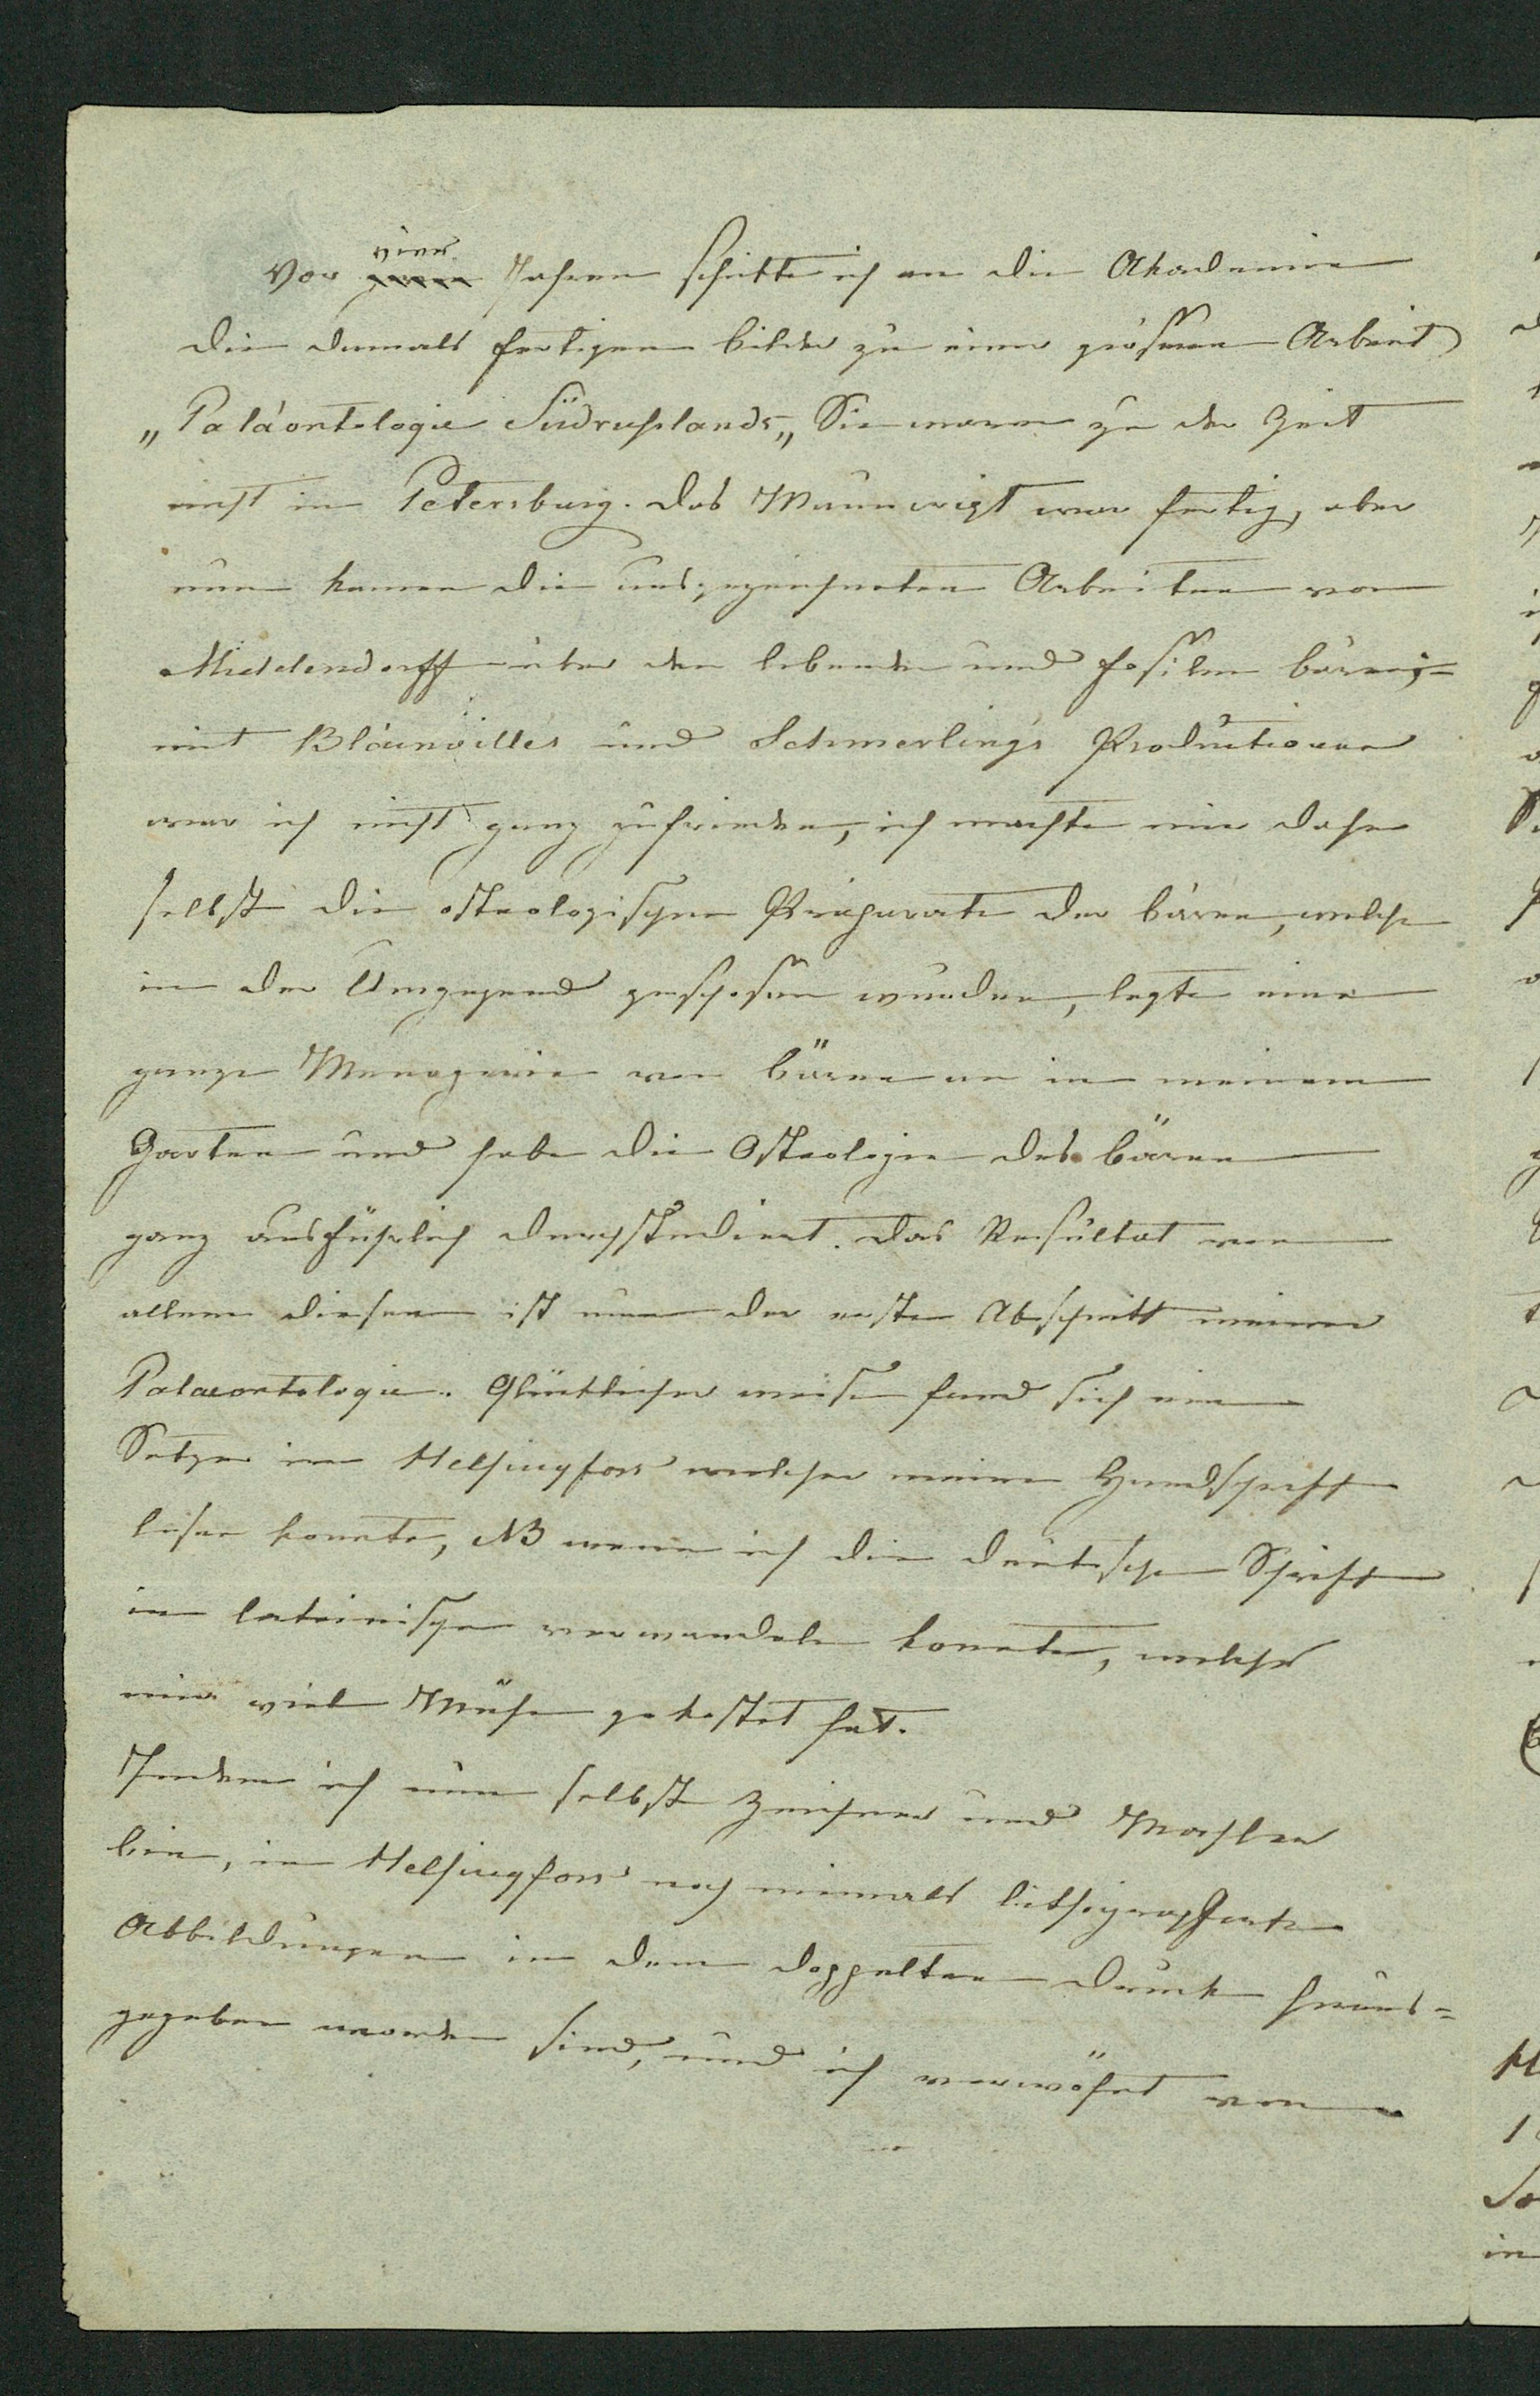 vier
Vor Jahren schickte ich an die Akademie
die damals fertigen bilder zu einer grösern Arbeit
„Paläontologie Südrusslands„ Sie waren zu der Zeit
nicht in Petersburg. das Manuscript war fertig, aber
nun kamen die ausgezeichneten Arbeiten von
Middendorff über den lebenden und fosilen bären;=
mit Blainvilles und Schmerlings Productionen
war ich nicht ganz zufrieden, ich machte mir daher
selbst die osteologischen Präparate der bären, welche
in der Umgegend geschosen wurden, legte eine
ganze Menagerie von bären an in meinem
Garten und habe die Osteologie des bären
ganz ausführlich durchstudiert. das Resultat von
allem diesem ist nun der erste Abschnitt meiner
Palaeontologie. Glücklicher weise fand sich ein
Setzer in Helsingfors welcher meine Handschrift
lesen konnte, NB wenn ich die deutsche Schrift
in lateinische verwandeln konnte, welches
mir viel Mühe gekostet hat.
Indem ich nun selbst Zeichner und Mahler
bin, in Helsingfors noch niemals lithographirte
Abbildungen in dem doppelten druck heraus=
gegeben worden sind, und ich verwöhnt von